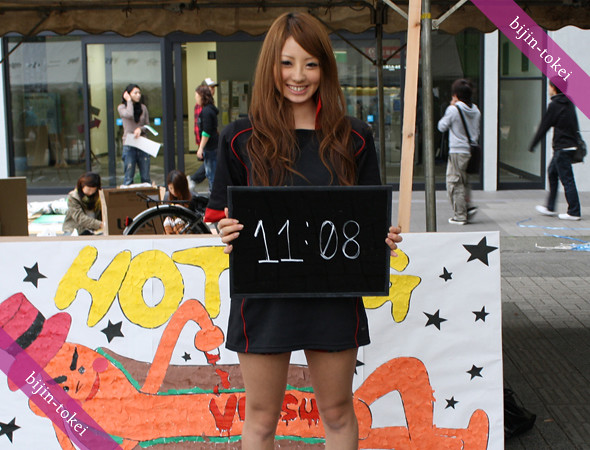 bijin-tokei
11:08
HOT
G
bijin-tokei